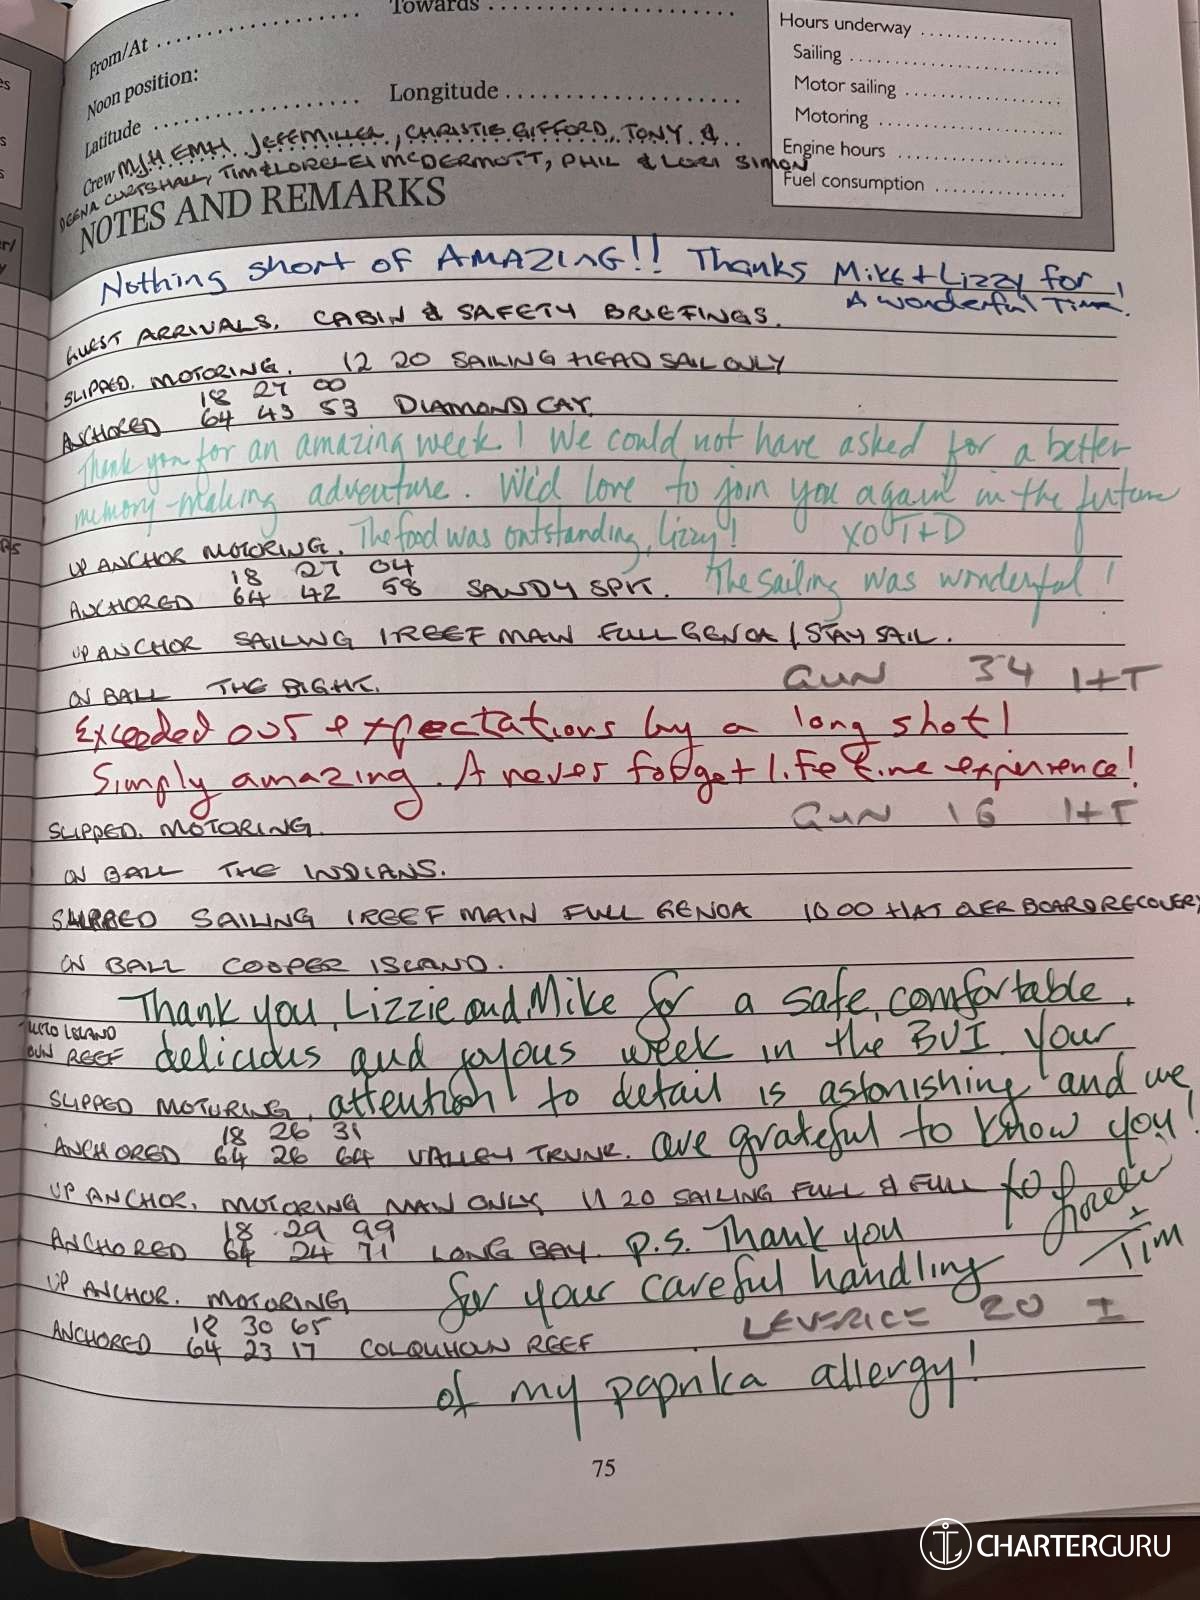 Towards
From/At
Noon position:
Latitude
Longitude
Hours underway
Sailing
Motor sailing
Motoring
Engine hours
Fuel consumption
Crew MJH EMH JEFF MILLER, CHRISTIE GIFFORD, TONY &
DEENA CURTSHALL, TIM & LORELEI MCDERMOTT, PHIL & LORI SIMON
NOTES AND REMARKS
Nothing short of AMAZING!! Thanks Mike + Lizzy for
A wonderful Time!
GUEST ARRIVALS. CABIN & SAFETY BRIEFINGS.
SLIPPED. MOTORING. 12 20 SAILING HEAD SAIL ONLY
18 27 00
ANCHORED 64 43 53 DIAMOND CAY.
Thank you for an amazing week! We could not have asked for a better
memory-making adventure. We'd love to join you again in the future
UP ANCHOR MOTORING. The food was outstanding, Lizzy! XO T+D
18 27 04
ANCHORED 64 42 58 SANDY SPIT. The sailing was wonderful!
UP ANCHOR SAILING 1 REEF MAIN FULL GENOA / STAY SAIL.
ON BALL THE BIGHT. GUN 34 I+T
Exceeded our expectations by a long shot!
Simply amazing. A never forget life time experience!
SLIPPED. MOTORING. GUN 16 I+T
ON BALL THE INDIANS.
SLIPPED SAILING 1 REEF MAIN FULL GENOA 10 00 HAT OVER BOARD RECOVERY
ON BALL COOPER ISLAND.
Thank you, Lizzie and Mike for a safe, comfortable,
ISLAND
REEF delicious and joyous week in the BVI. Your
SLIPPED MOTORING. attention to detail is astonishing and we
18 26 31
ANCHORED 64 26 64 VALLEY TRUNK. are grateful to know you!
UP ANCHOR. MOTORING MAIN ONLY, 11 20 SAILING FULL & FULL XO Lorelei
18 29 99
ANCHORED 64 24 71 LONG BAY. P.S. Thank you + Tim
UP ANCHOR. MOTORING for your careful handling
18 30 65 LEVERICE 20 I
ANCHORED 64 23 17 COLQUHOUN REEF
of my paprika allergy!
75
CHARTERGURU